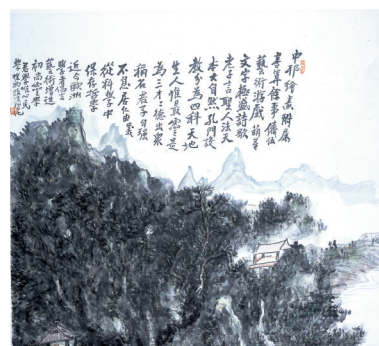 中邦繪畫附屬
書算餘事儕伍
藝術游戲萌芽
文字極盛詩歌
老子言聖人法天
本大自然孔門設
教分為四科天地
生人惟最靈是
為三才三德出衆
稱名君子自強
不息居仁由義
從科學中
保存哲學
近今歐洲
學者倡言
藝術增進
初尚靈學
學唯心民
學